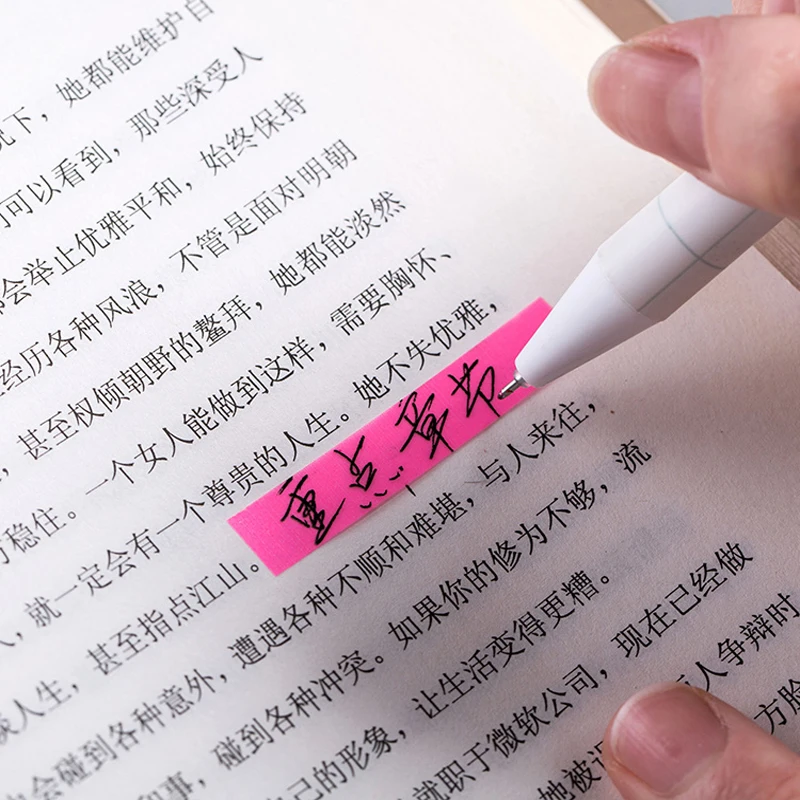 况下，她都能维护自
可以看到，那些深受人
都会举止优雅平和，始终保持
经历各种风浪，不管是面对明朝
，甚至权倾朝野的鳌拜，她都能淡然
稳住。一个女人能做到这样，需要胸怀、
，就一定会有一个尊贵的人生。她不失优雅，
谈人生，甚至指点江山。
重点章节
会碰到各种意外，遭遇各种不顺和难堪，与人来往，
和事，碰到各种冲突。如果你的修为不够，流
己的形象，让生活变得更糟。
就职于微软公司，现在已经做
她被 人争辩时
方脸